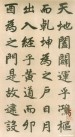 天地闔闢運乎鴻樞
而乾坤為之戶日月
出入經乎黃道而卯
酉為之門是故建設